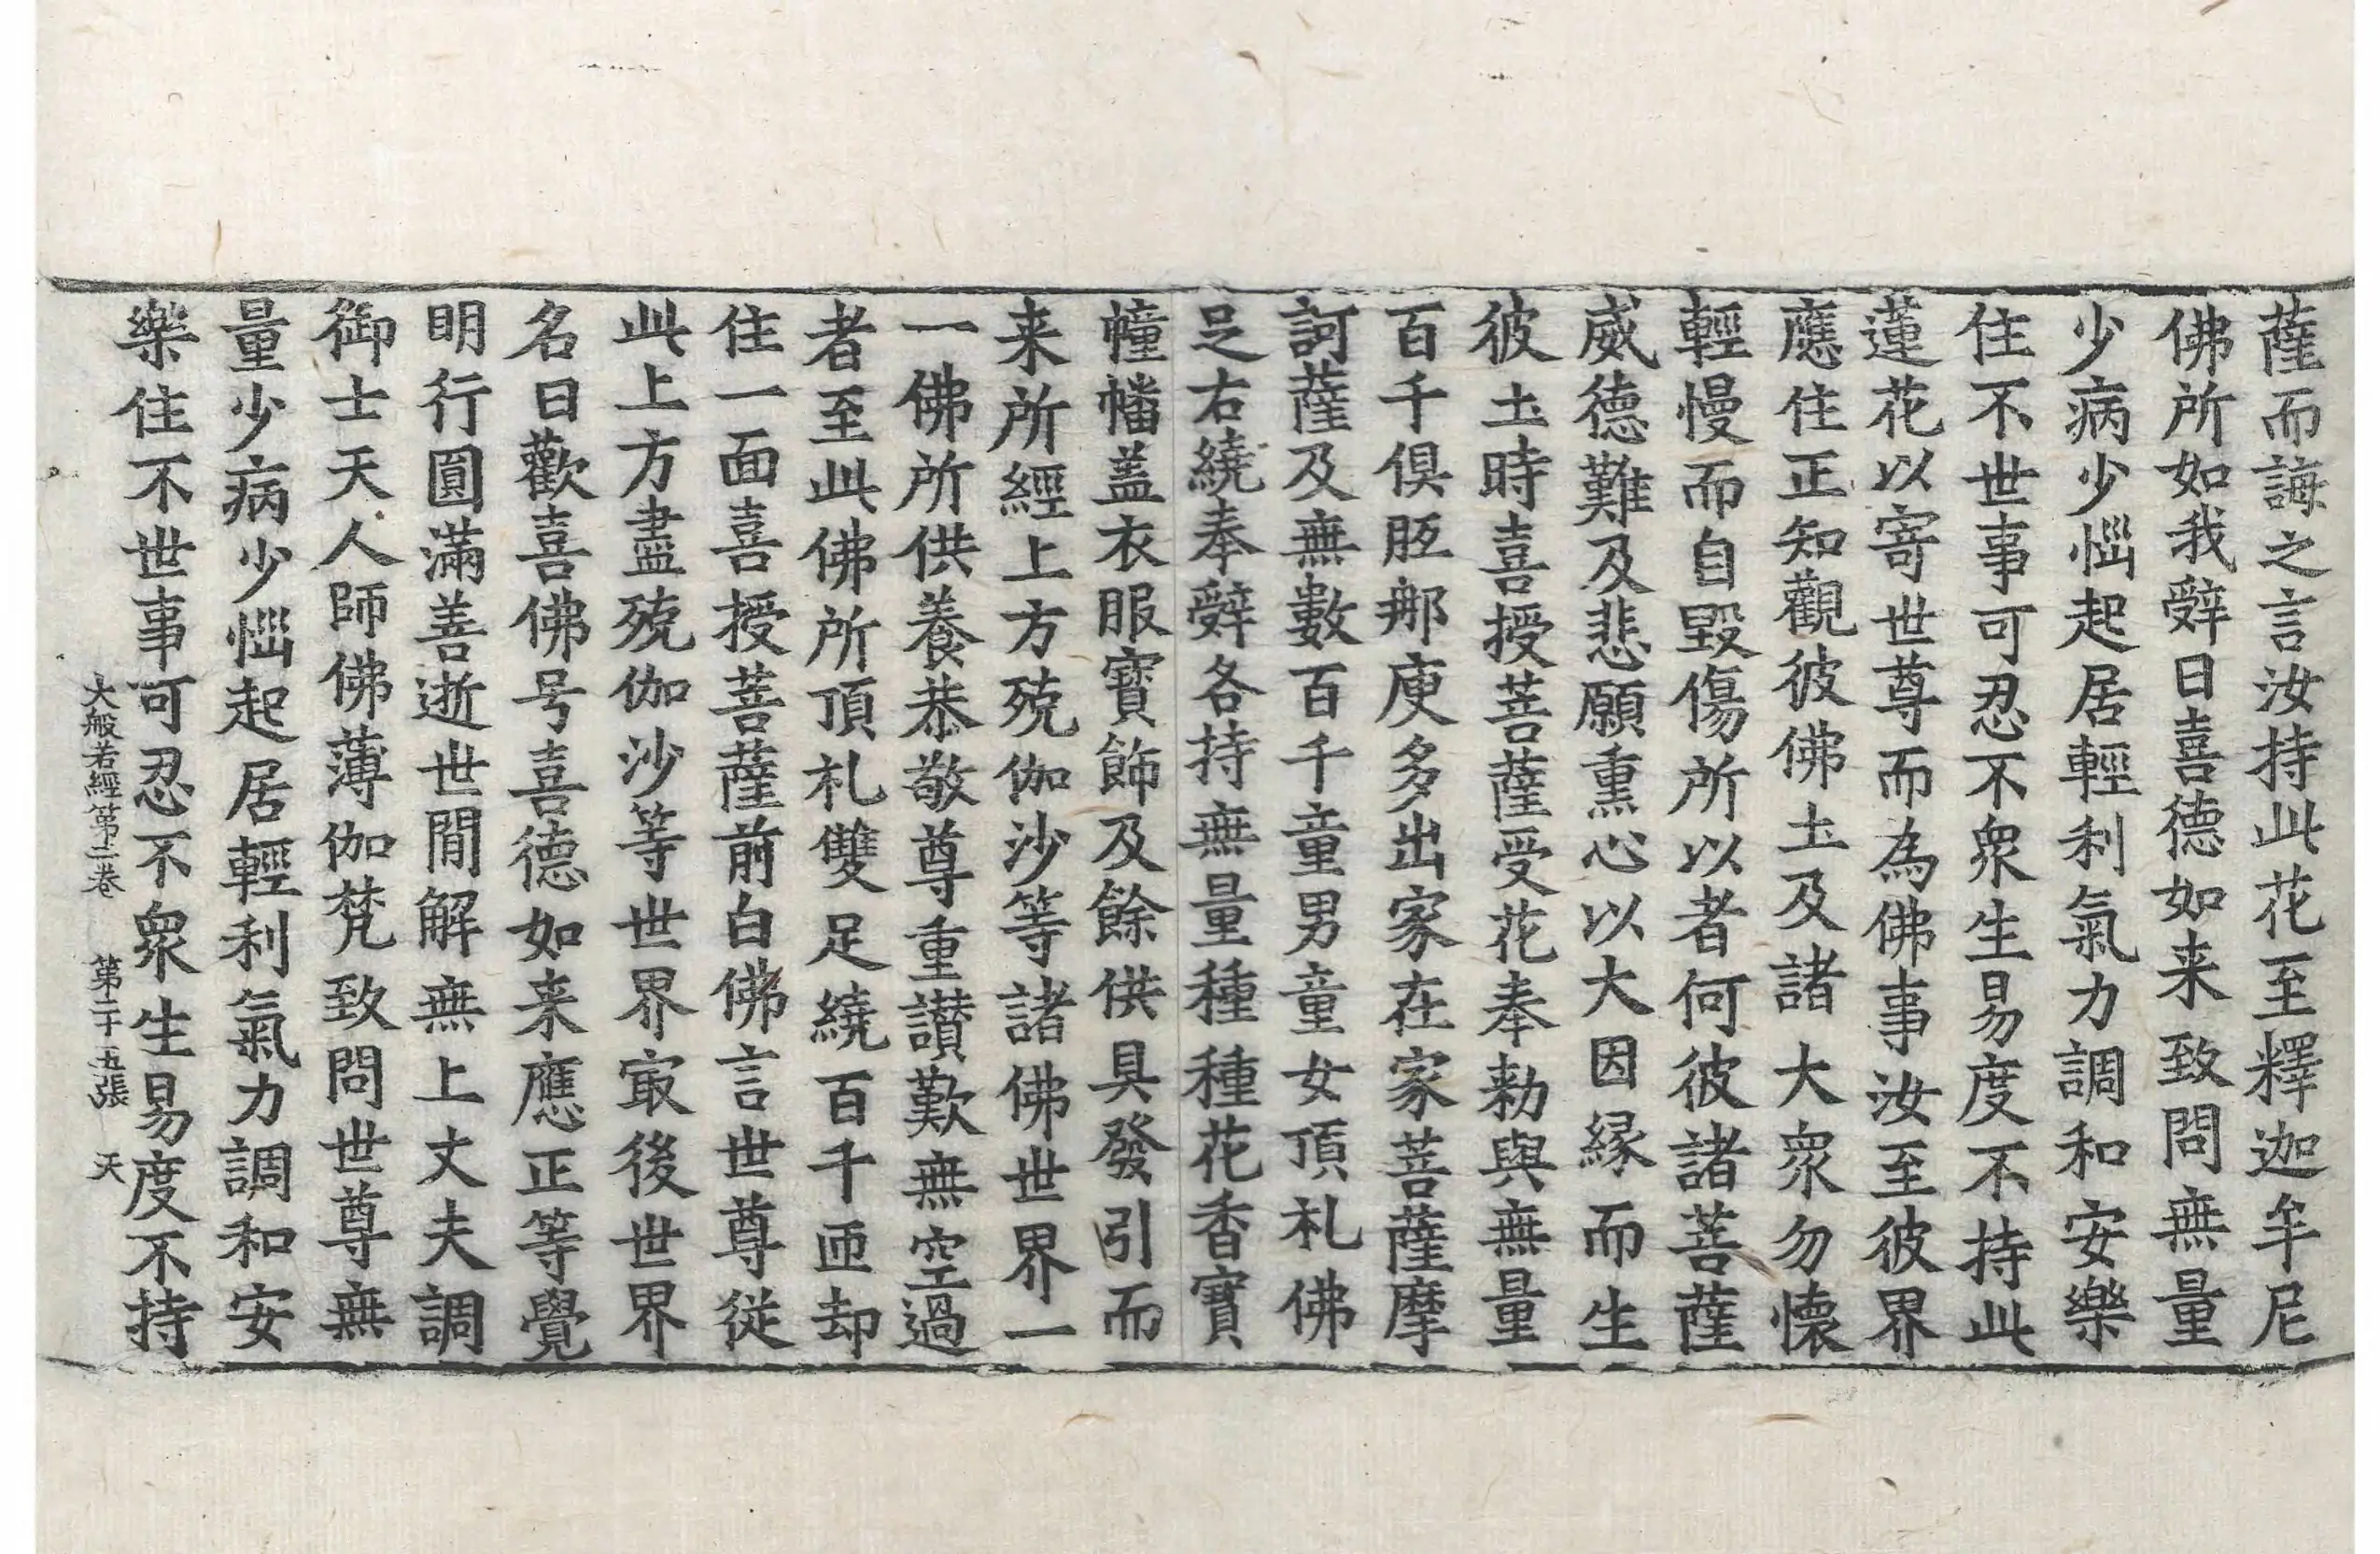 薩而誨之言汝持此花至釋迦牟尼
佛所如我辝曰喜德如来致問無量
少病少惱起居輕利氣力調和安樂
住不世事可忍不衆生易度不持此
蓮花以寄世尊而為佛事汝至彼界
應住正知觀彼佛土及諸大衆勿懷
輕慢而自毀傷所以者何彼諸菩薩
威德難及悲願熏心以大因緣而生
彼土時喜授菩薩受花奉勑與無量
百千俱胝那庾多出家在家菩薩摩
訶薩及無數百千童男童女頂礼佛
足右繞奉辝各持無量種種花香寶
幢幡盖衣服寶飾及餘供具發引而
来所經上方殑伽沙等諸佛世界一
一佛所供養恭敬尊重讃歎無空過
者至此佛所頂礼雙足繞百千匝却
住一面喜授菩薩前白佛言世尊従
此上方盡殑伽沙等世界㝡後世界
名曰歡喜佛号喜德如来應正等覺
明行圓滿善逝世間解無上丈夫調
御士天人師佛薄伽梵致問世尊無
量少病少惱起居輕利氣力調和安
樂住不世事可忍不衆生易度不持
大般若經第二卷 第二十五張 天